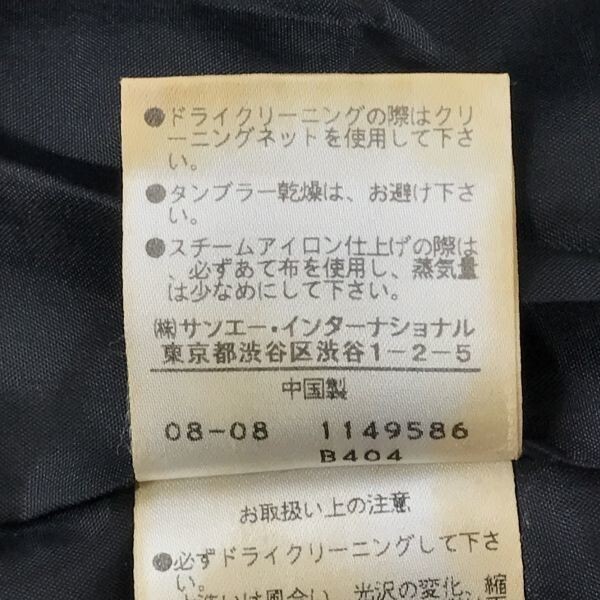 ●ドライクリーニングの際はクリ
ーニングネットを使用して下さ
い。
●タンブラー乾燥は、お避け下さ
い。
●スチームアイロン仕上げの際は
、必ずあて布を使用し、蒸気量
は少なめにして下さい。
㈱サンエー・インターナショナル
東京都渋谷区渋谷1-2-5
中国製
08-08 1149586
B404
お取扱い上の注意
●必ずドライクリーニングして下さ
い。
水洗いは風合い、光沢の変化、縮